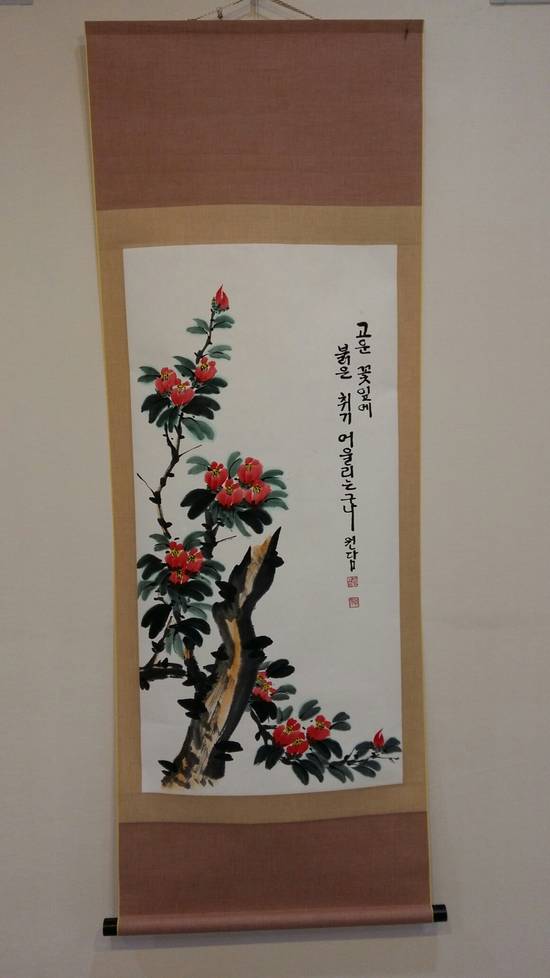 고운 꽃잎에
붉은 취기 어울리는구나